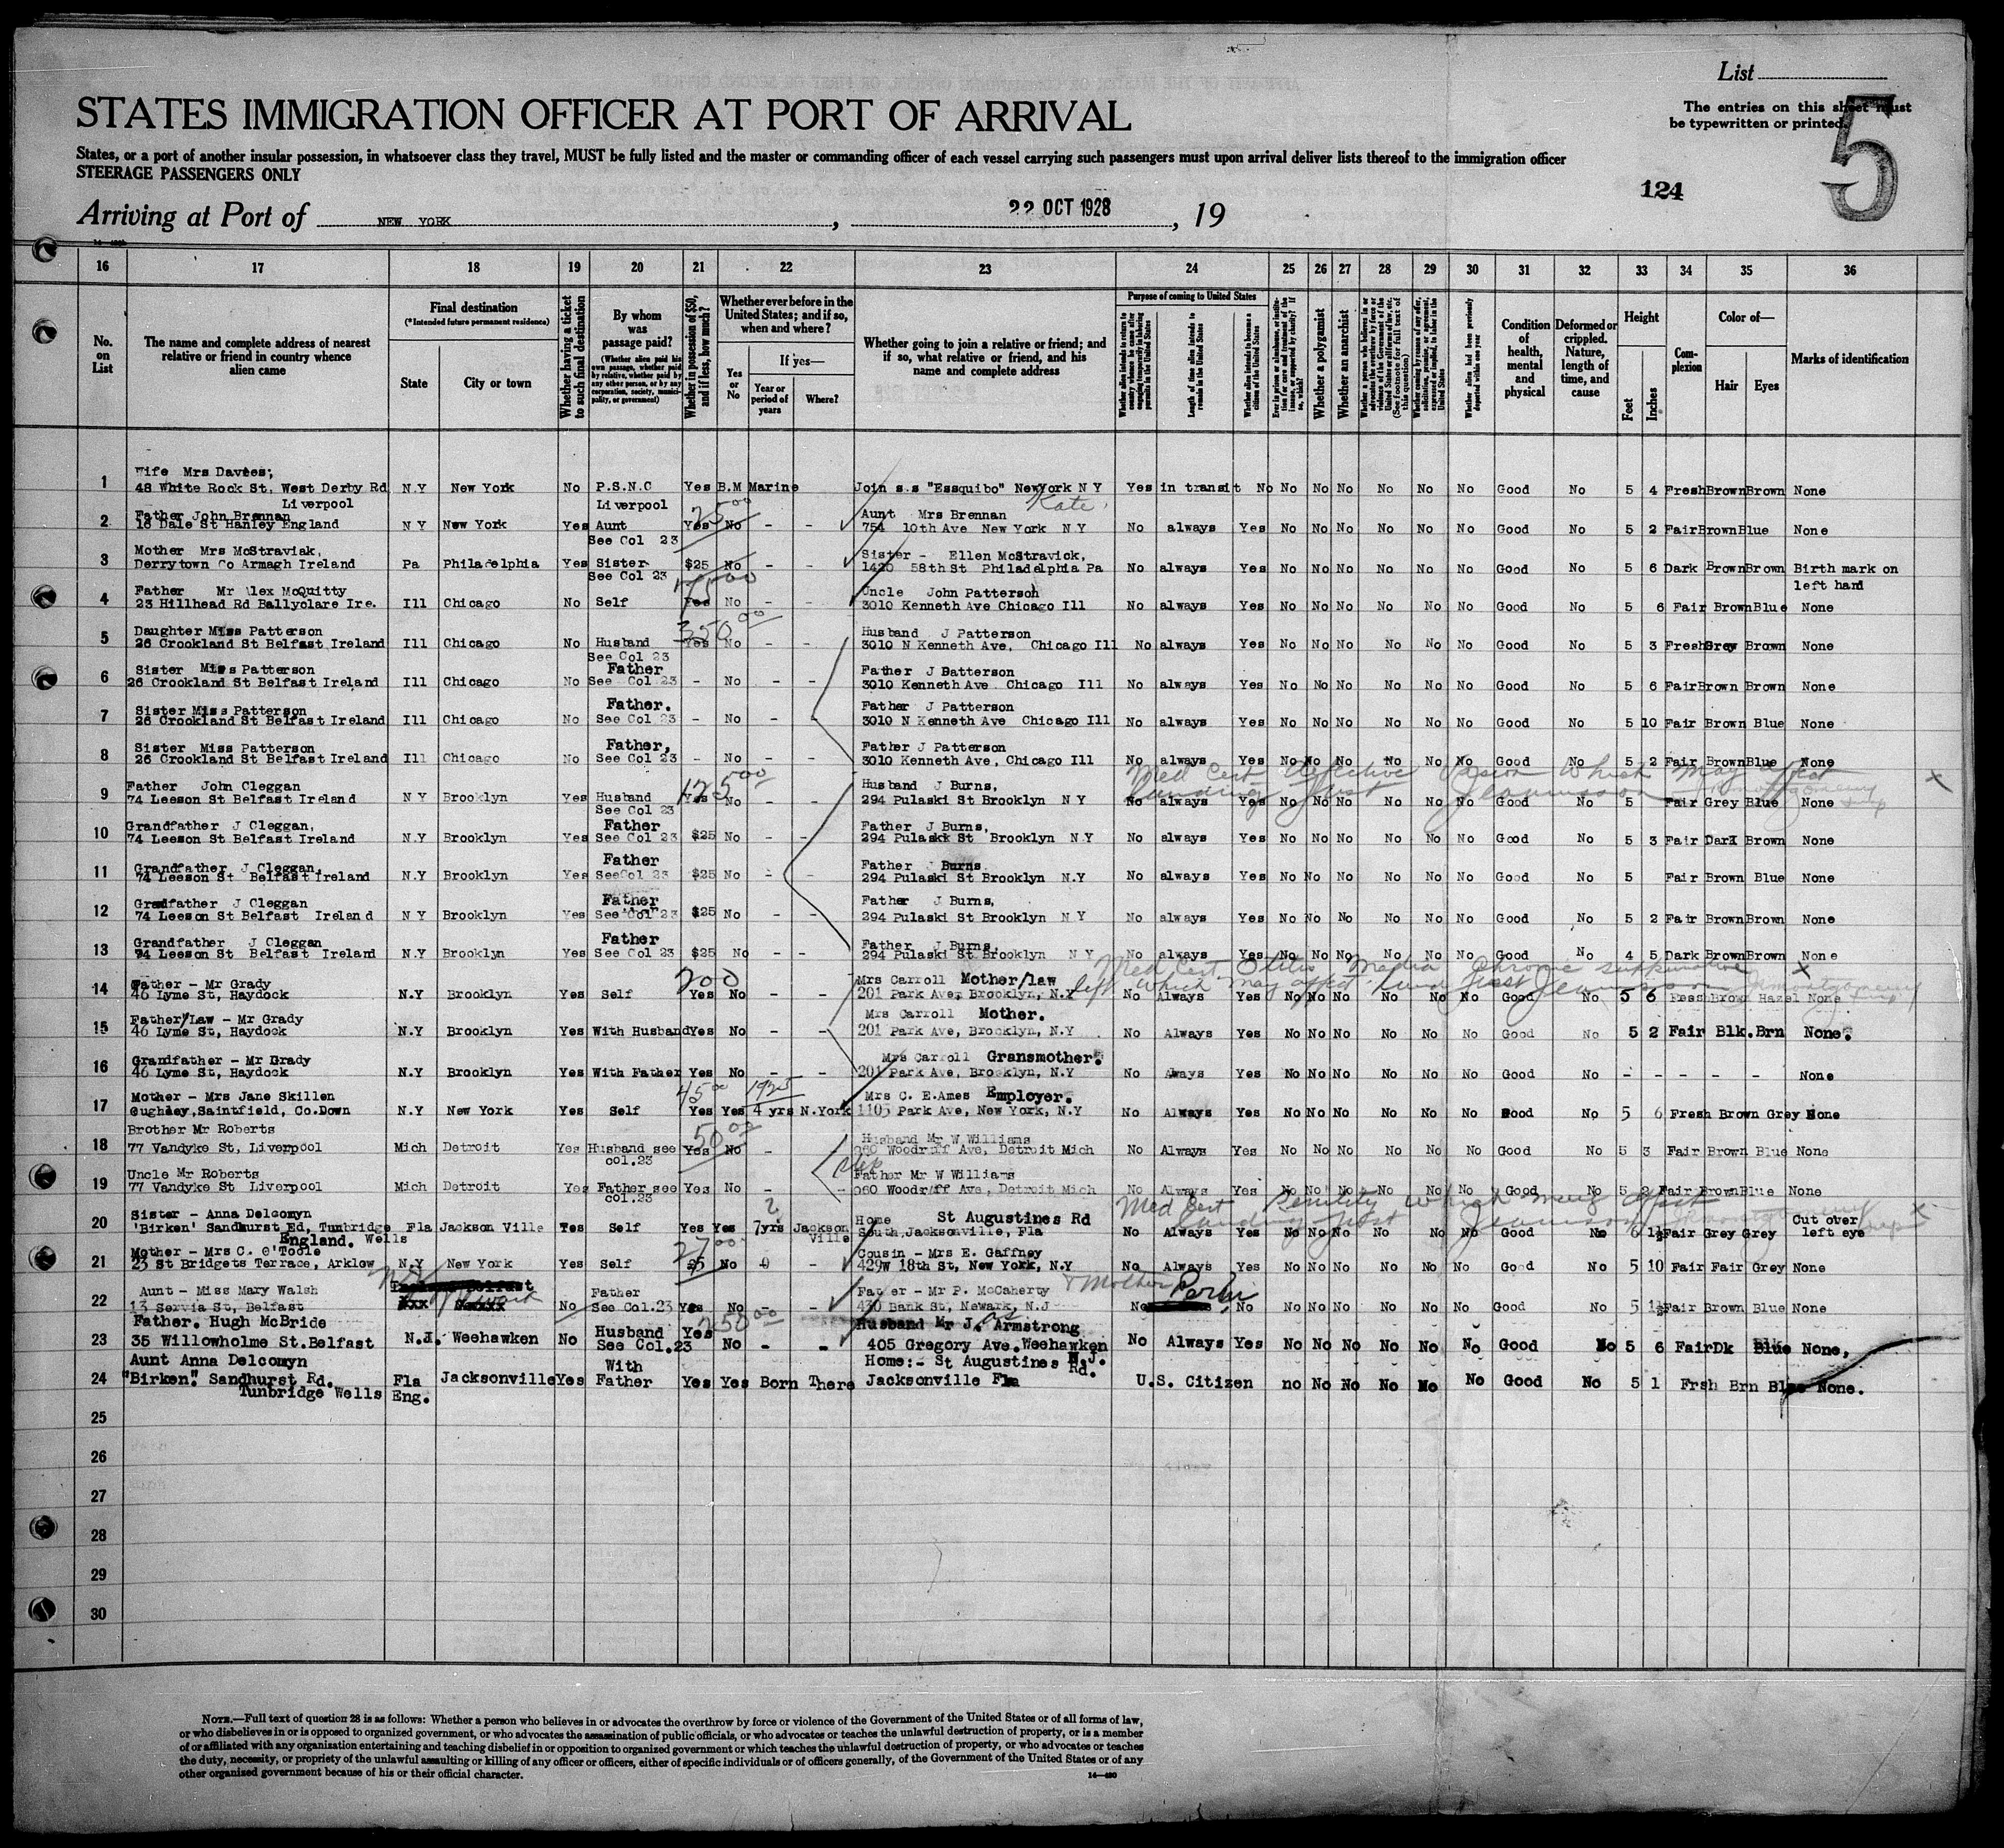 List
STATES IMMIGRATION OFFICER AT PORT OF ARRIVAL
The entries on this sheet must
be typewritten or printed.
5
States, or a port of another insular possession, in whatsoever class they travel, MUST be fully listed and the master or commanding officer of each vessel carrying such passengers must upon arrival deliver lists thereof to the immigration officer
STEERAGE PASSENGERS ONLY
124
Arriving at Port of NEW YORK , 22 OCT 1928 , 19
16 17 18 19 20 21 22 23 24 25 26 27 28 29 30 31 32 33 34 35 36
No. on List
The name and complete address of nearest relative or friend in country whence alien came
Final destination
(*Intended future permanent residence)
State
City or town
Whether having a ticket to such final destination
By whom was passage paid?
(Whether alien paid his own passage, whether paid by relative, whether paid by any other person, or by any corporation, society, municipality, or government)
Whether in possession of $50, and if less, how much?
Whether ever before in the United States; and if so, when and where?
Yes or No
If yes—
Year or period of years
Where?
Whether going to join a relative or friend; and if so, what relative or friend, and his name and complete address
Purpose of coming to United States
Length of time alien intends to remain in the United States
Whether alien intends to become a citizen of the United States
Whether a polygamist
Whether an anarchist
Whether alien had been previously deported within one year
Condition of health, mental and physical
Deformed or crippled. Nature, length of time, and cause
Height
Feet
Inches
Complexion
Color of—
Hair
Eyes
Marks of identification
1 Wife Mrs Davies;
48 White Rock St, West Derby Rd N.Y New York No P.S.N.C Yes B.M Marine Join s.s "Essquibo" NewYork N Y Yes in transit No No No No No No No Good No 5 4 Fresh Brown Brown None
Liverpool Liverpool 25 00 Kate
2 Father John Brennan Aunt Mrs Brennan
16 Dale St Hanley England N Y New York Yes Aunt Yes No - - 754 10th Ave New York N Y No always Yes No No No No No No Good No 5 2 Fair Brown Blue None
See Col 23
3 Mother Mrs McStraviak, Sister - Ellen McStravick,
Derrytown Co Armagh Ireland Pa Philadelphia Yes Sister $25 No - - 1420 58th St Philadelphia Pa No always Yes No No No No No No Good No 5 6 Dark Brown Brown Birth mark on
See Col 23 left hand
4 Father Mr Alex McQuitty 75 00 Uncle John Patterson
23 Hillhead Rd Ballyclare Ire. Ill Chicago No Self Yes No - - 3010 Kenneth Ave Chicago Ill No always Yes No No No No No No Good No 5 6 Fair Brown Blue None
5 Daughter Miss Patterson 350 00 Husband J Patterson
26 Crookland St Belfast Ireland Ill Chicago No Husband Yes No - - 3010 N Kenneth Ave, Chicago Ill No always Yes No No No No No No Good No 5 3 Fresh Grey Brown None
See Col 23
6 Sister Miss Patterson Father Father J Batterson
26 Crookland St Belfast Ireland Ill Chicago No See Col 23 - No - - 3010 Kenneth Ave Chicago Ill No always Yes No No No No No No Good No 5 6 Fair Brown Brown None
7 Sister Miss Patterson Father. Father J Patterson
26 Crookland St Belfast Ireland Ill Chicago No See Col 23 - No - - 3010 N Kenneth Ave Chicago Ill No always Yes No No No No No No Good No 5 10 Fair Brown Blue None
8 Sister Miss Patterson Father, Father J Patterson
26 Crookland St Belfast Ireland Ill Chicago No See Col 23 - No - - 3010 Kenneth Ave, Chicago Ill No always Yes No No No No No No Good No 5 2 Fair Brown Blue None
Med Cert defective vision which may affect
9 Father John Cleggan 125 00 Husband J Burns, landing
74 Leeson St Belfast Ireland N Y Brooklyn Yes Husband Yes No - - 294 Pulaski St Brooklyn N Y No always Yes No No No No No No Good No 5 Fair Grey Blue None
See Col 23
10 Grandfather J Cleggan, Father Father J Burns,
74 Leeson St Belfast Ireland N.Y Brooklyn Yes See Col 23 $25 No - - 294 Pulaski St Brooklyn N.Y No always Yes No No No No No No Good No 5 3 Fair Dark Brown None
11 Grandfather J Cleggan, Father Father J Burns.
74 Leeson St Belfast Ireland N.Y Brooklyn Yes SeeCol 23 $25 No - - 294 Pulaski St Brooklyn N.Y No always Yes No No No No No No Good No 5 Fair Brown Blue None
12 Grandfather J Cleggan Father Father J Burns,
74 Leeson St Belfast Ireland N Y Brooklyn Yes See Col 23 $25 No - - 294 Pulaski St Brooklyn N Y No always Yes No No No No No No Good No 5 2 Fair Brown Brown None
13 Grandfather J Cleggan Father Father J Burns,
74 Leeson St Belfast Ireland N.Y Brooklyn Yes See Col 23 $25 No - - 294 Pulaski St Brooklyn N Y No always Yes No No No No No No Good No 4 5 Dark Brown Brown None
Med Cert. Otitis Media Chronic suppurative
14 Father - Mr Grady 200 Mrs Carroll Mother/law left which may affect
46 Lyme St, Haydock N.Y Brooklyn Yes Self Yes No - - 201 Park Ave, Brooklyn, N.Y No Always Yes No No No No No No Good No 5 6 Fresh Brown Hazel None
15 Father/Law - Mr Grady Mrs Carroll Mother.
46 Lyme St, Haydock N.Y Brooklyn Yes With Husband Yes No - - 201 Park Ave, Brooklyn, N.Y No Always Yes No No No No No No Good No 5 2 Fair Blk. Brn None.
16 Grandfather - Mr Grady Mrs Carroll Gransmother.
46 Lyme St, Haydock N.Y Brooklyn Yes With Father Yes No - - 201 Park Ave, Brooklyn, N.Y No Always Yes No No No No No No Good No - - - - - None
17 Mother - Mrs Jane Skillen 45 00 1925 Mrs C. E.Ames Employer.
Oughley,Saintfield, Co.Down N.Y New York Yes Self Yes Yes 4 yrs N.York 1105 Park Ave, New York, N.Y No Always Yes No No No No No No Good No 5 6 Fresh Brown Grey None
18 Brother Mr Roberts 50 00 Husband Mr W Williams
77 Vandyke St, Liverpool Mich Detroit Yes Husband see Yes No - 960 Woodruff Ave, Detroit Mich No Always Yes No No No No No No Good No 5 3 Fair Brown Blue None
col.23
19 Uncle Mr Roberts Father Mr W Williams
77 Vandyke St Liverpool Mich Detroit Yes Father see Yes No - - 960 Woodruff Ave, Detroit Mich No Always Yes No No No No No No Good No 5 Fair Brown Blue None
col.23
Med Cert Senility which may affect
20 Sister - Anna Delcomyn 2 Home St Augustines Rd landing Cut over
'Birken' Sandhurst Ed, Tunbridge Fla Jackson Ville Yes Self Yes Yes 7yrs Jackson South, Jacksonville, Fla No Always Yes No No No No No No Good No 6 1½ Fair Grey Grey left eye
England. Wells Ville
21 Mother - Mrs C. O'Toole 27 00 Cousin - Mrs E. Gaffney
23 St Bridgets Terrace, Arklow N.Y New York Yes Self 25 No 0 - 429W 18th St, New York, N.Y No Always Yes No No No No No No Good No 5 10 Fair Fair Grey None
22 Aunt - Miss Mary Walsh NJ Newark Father Father - Mr P. McCaherty + Mother
13 Servia St, Belfast xxx No See Col.23 Yes No - - 430 Bank St, Newark, N.J No Perm No No No No No No No Good No 5 1½ Fair Brown Blue None
23 Father. Hugh McBride 250 00 Husband Mr J. Armstrong
35 Willowholme St.Belfast N.J. Weehawken No Husband Yes No - - 405 Gregory Ave.Weehawken No Always Yes No No No No No No Good No 5 6 Fair Dk Blue None,
See Col.23 N.J.
24 Aunt Anna Delcomyn With Home:- St Augustines Rd.
"Birken". Sandhurst Rd. Fla Jacksonville Yes Father Yes Yes Born There Jacksonville Fla U.S. Citizen no No No No No No Good No 5 1 Frsh Brn Blue None.
Tunbridge Wells Eng.
25
26
27
28
29
30
NOTE.—Full text of question 28 is as follows: Whether a person who believes in or advocates the overthrow by force or violence of the Government of the United States or of all forms of law,
or who disbelieves in or is opposed to organized government, or who advocates the assassination of public officials, or who advocates or teaches the unlawful destruction of property, or is a member
of or affiliated with any organization entertaining and teaching disbelief in or opposition to organized government or which teaches the unlawful destruction of property, or who advocates or teaches
the duty, necessity, or propriety of the unlawful assaulting or killing of any officer or officers, either of specific individuals or of officers generally, of the Government of the United States or of any
other organized government because of his or their official character.
14—480